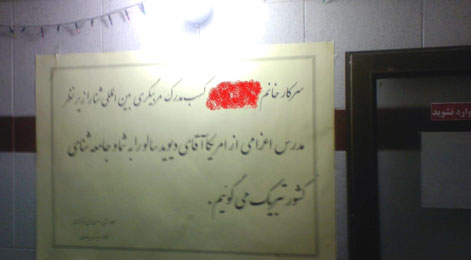 سرکار خانم کسب مدرک مربیگری بین المللی شنا را زیر نظر
مدرس اعزامی از امریکا آقای دیوید سالو را به شما و جامعه شنای
کشور تبریک می گوییم.
وارد نشوید